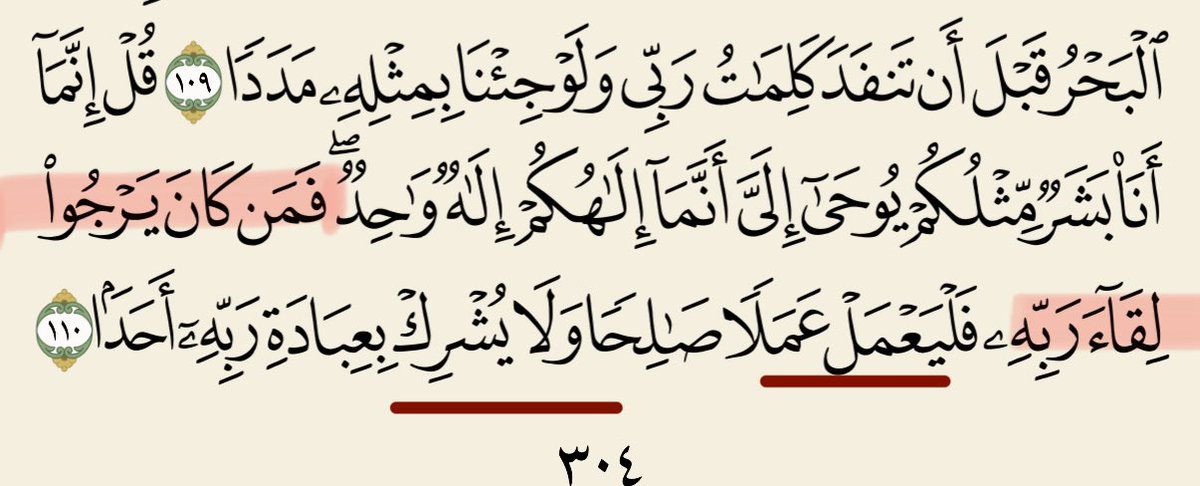 ٱلْبَحْرُ قَبْلَ أَن تَنفَدَ كَلِمَٰتُ رَبِّى وَلَوْ جِئْنَا بِمِثْلِهِۦ مَدَدًا ١٠٩ قُلْ إِنَّمَآ
أَنَا۠ بَشَرٌ مِّثْلُكُمْ يُوحَىٰٓ إِلَىَّ أَنَّمَآ إِلَٰهُكُمْ إِلَٰهٌ وَٰحِدٌ ۖ فَمَن كَانَ يَرْجُوا۟
لِقَآءَ رَبِّهِۦ فَلْيَعْمَلْ عَمَلًا صَٰلِحًا وَلَا يُشْرِكْ بِعِبَادَةِ رَبِّهِۦٓ أَحَدًۢا ١١٠
٣٠٤